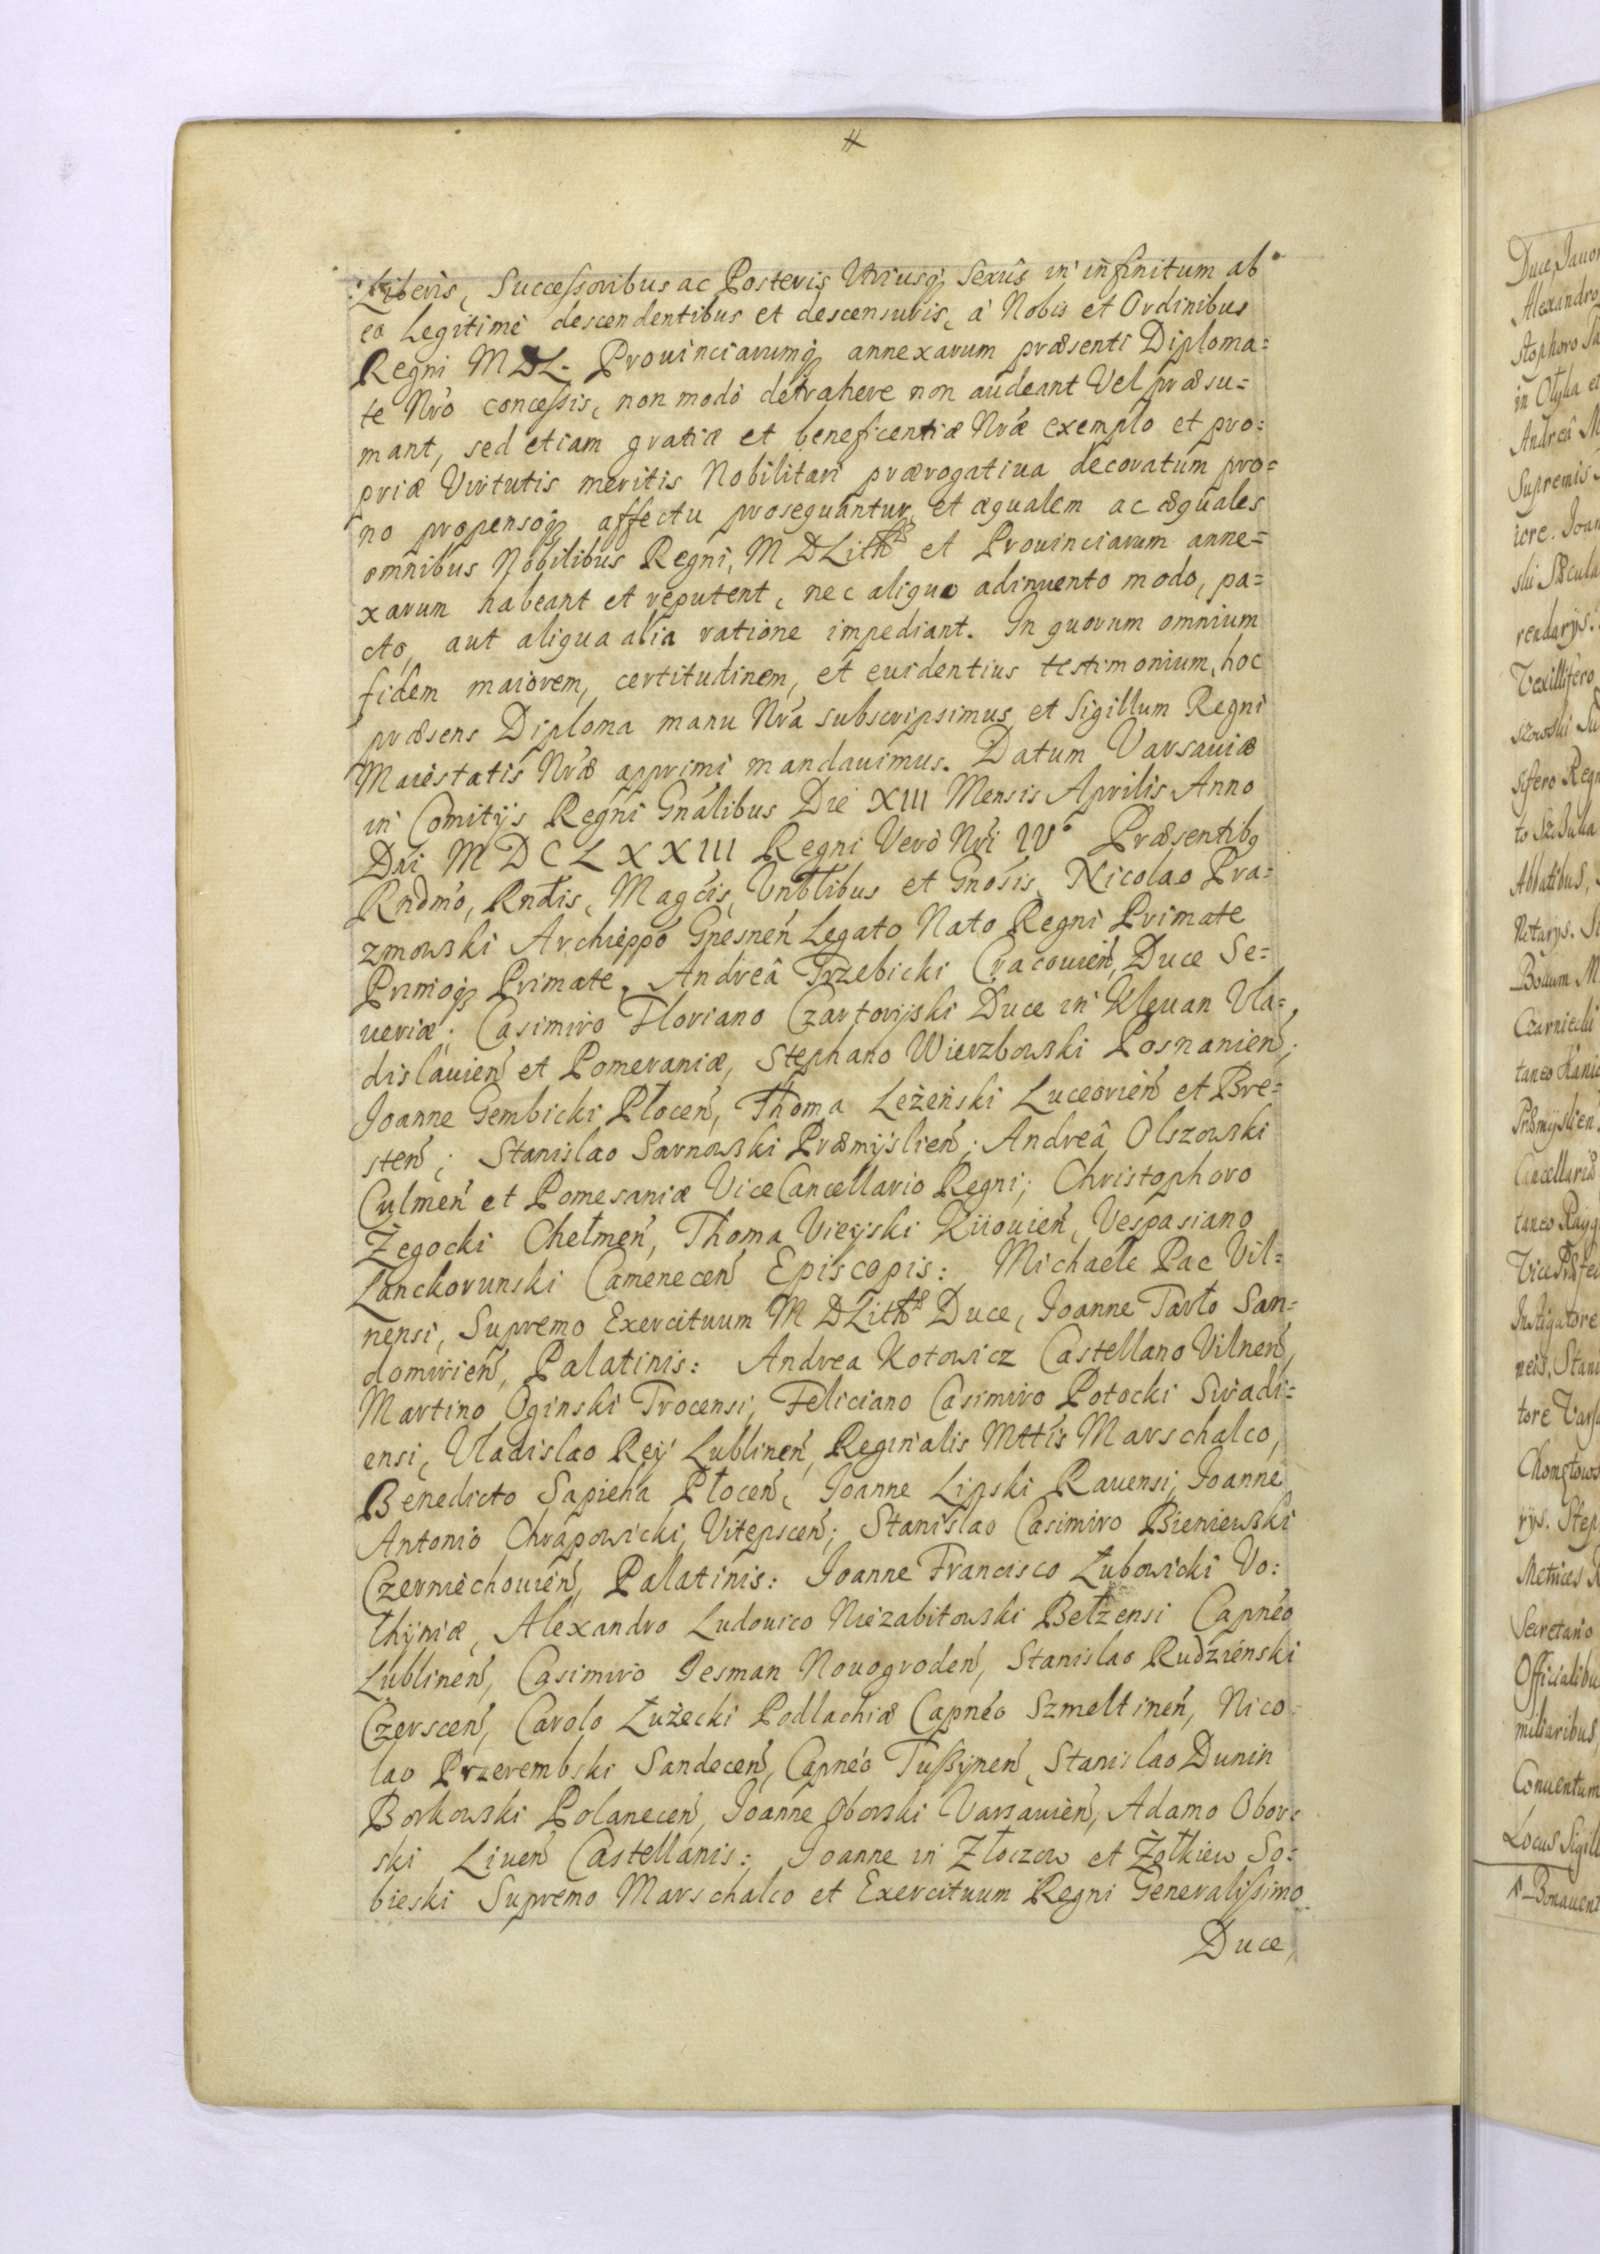 Liberis, Successoribus ac Posteris Utriusq; Sexûs in infinitum ab
eo legitimè descendentibus et descensuris, à Nobis et Ordinibus
Regni MDL. Prouinciarumq; annexarum præsenti Diploma=
te Nro concessis, non modò detrahere non audeant Vel præsu=
mant, sed etiam gratiæ et beneficentiæ Nræ exemplo et pro=
priæ Virtutis meritis Nobilitari prærogatiua decoratum pro=
no propensoq; affectu prosequantur, et æqualem ac æquales
omnibus Nobilibus Regni, M D Lith et Prouinciarum anne=
xarum habeant et reputent, nec aliquo adinuento modo, pa=
cto, aut aliqua alia ratione impediant. In quorum omnium
fidem maiorem, certitudinem, et euidentius testimonium, hoc
præsens Diploma manu Nrâ subscripsimus et Sigillum Regni
Maiestatis Nræ apprimi mandauimus. Datum Varsauiæ
in Comitijs Regni Gnalibus Die XIII Mensis Aprilis Anno
Dni MDCLXXIII Regni Verò Nri IV° Præsentibq
Rndmo, Rndis, Magcis, Vnblibus et Gnosis, Nicolao Pra=
zmowski Archieppo Gnesnen Legato Nato Regni Primate
Primoq; Primate, Andreâ Trzebicki Cracouien, Duce Se=
ueriæ; Casimiro Floriano Czartoryiski Duce in Kleuan Vla=
dislauien et Pomeraniæ, Stephano Wierzbowski Posnanien;
Joanne Gembicki Płocen, Thoma Leżeński Luceorien et Bre=
sten; Stanislao Sarnowski Præmÿslien; Andreâ Olszowski
Culmen et Pomesaniæ ViceCancellario Regni; Christophoro
Żegocki Chełmen, Thoma Vieyski Kiiouien, Vespasiano
Lanckorunski Camenecen Episcopis: Michaele Pac Vil=
nensi, Supremo Exercituum M D Lith Duce, Joanne Tarło San=
domirien, Palatinis: Andrea Kotowicz Castellano Vilnen,
Martino Oginski Trocensi, Feliciano Casimiro Potocki Siradi=
ensi, Vladislao Rey Lublinen, Reginalis Mttis Marschalco,
Benedicto Sapieha Płocen, Joanne Lipski Rauensi, Joanne
Antonio Chrapowicki, Vitepscen; Stanislao Casimiro Bieniewski
Czerniechouien, Palatinis: Joanne Francisco Łubowicki Vo=
lhÿniæ, Alexandro Ludouico Niezabitowski Bełzensi Capneo
Lublinen, Casimiro Jesman Nouogroden, Stanislao Rudzieński
Czerscen, Carolo Łużecki Podlachiæ Capneo Szmeltinen, Nico=
lao Przerembski Sandecen, Capneo Tussynen, Stanislao Dunin
Borkowski Polanecen, Joanne Oborski Varsauien, Adamo Obor=
ski Liuen Castellanis: Joanne in Złoczow et Żołkiew So=
bieski Supremo Marschalco et Exercituum Regni Generalissimo
Duce,